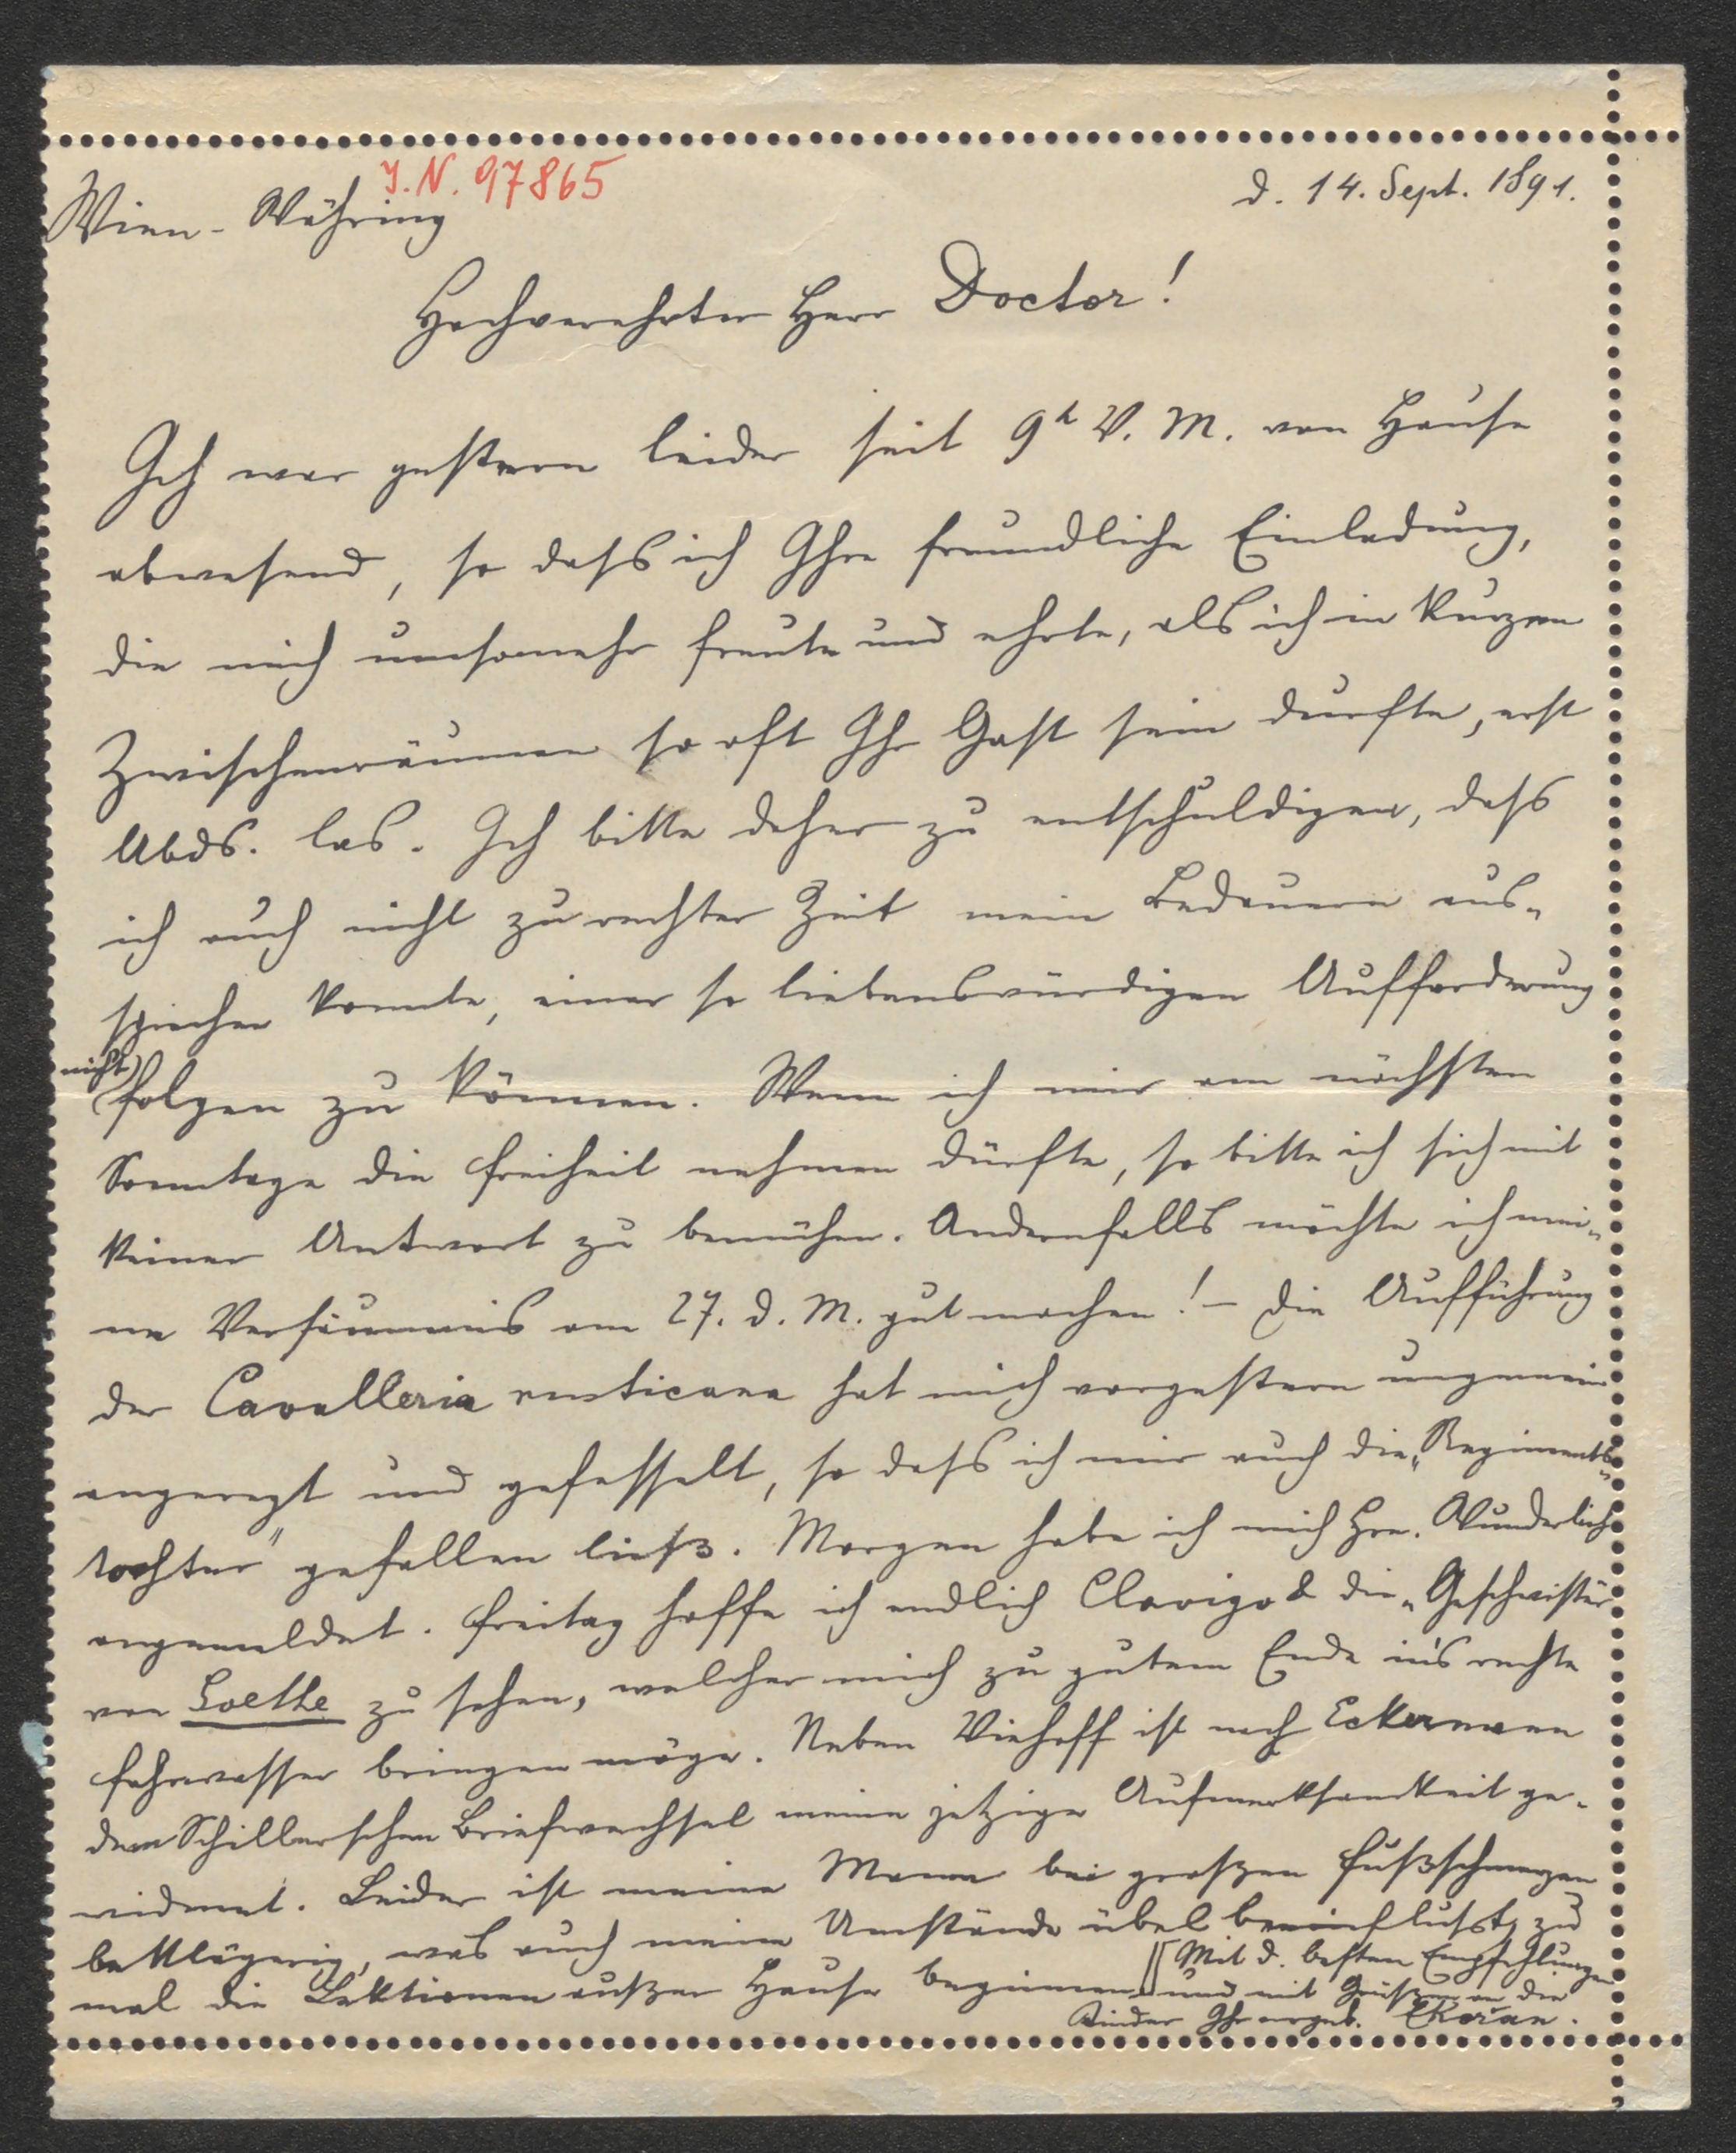 J. N. 97865
Wien - Währing
d. 14. Sept. 1891.
Hochverehrter Herr Doctor!
Ich war gestern leider seit 9h V. M. von Hause
abwesend, so dass ich Ihre freundliche Einladung,
die mich umsomehr freute und ehrte, als ich in kurzen
Zwischenräumen so oft Ihr Gast sein durfte, erst
Abds. las. Ich bitte daher zu entschuldigen, dass
ich auch nicht zu rechter Zeit mein Bedauern aus-
sprechen konnte, einer so liebenswürdigen Aufforderung
nicht
folgen zu können. Wenn ich mir am nächsten
Sonntage die Freiheit nehmen dürfte, so bitte ich sich mit
keiner Antwort zu bemühen. Andernfalls möchte ich mei-
ne Versäumnis am 27. d. M. gut machen! - Die Aufführung
der Cavalleria rusticana hat mich vorgestern ungemein
angeregt und gefesselt, so dass ich mir auch die „Regiments-
tochter" gefallen ließ. Morgen habe ich mich Hrn. Wunderlich
angemeldet. Freitag hoffe ich endlich Clavigo & die „Geschwister
von Goethe zu sehen, welcher mich zu gutem Ende in's rechte
Fahrwasser bringen möge. Neben Viehoff ist nach Eckermann
dem Schillerschen Briefwechsel meine jetzige Aufmerksamkeit ge-
widmet. Leider ist meine Mama bei großen Fußschmerzen
bettlägerig, was auch meine Umstände übel beeinflusst, zu
mal die Lektionen außer Hause beginnen. Mit d. besten Empfehlungen
und mit Grüßen an die
Kinder Ihr ergeb.